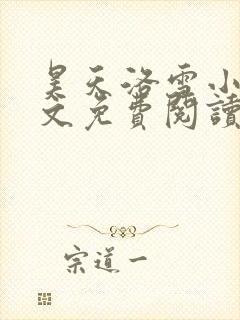 昊天洛雪小
文免費閱讀
宗道一